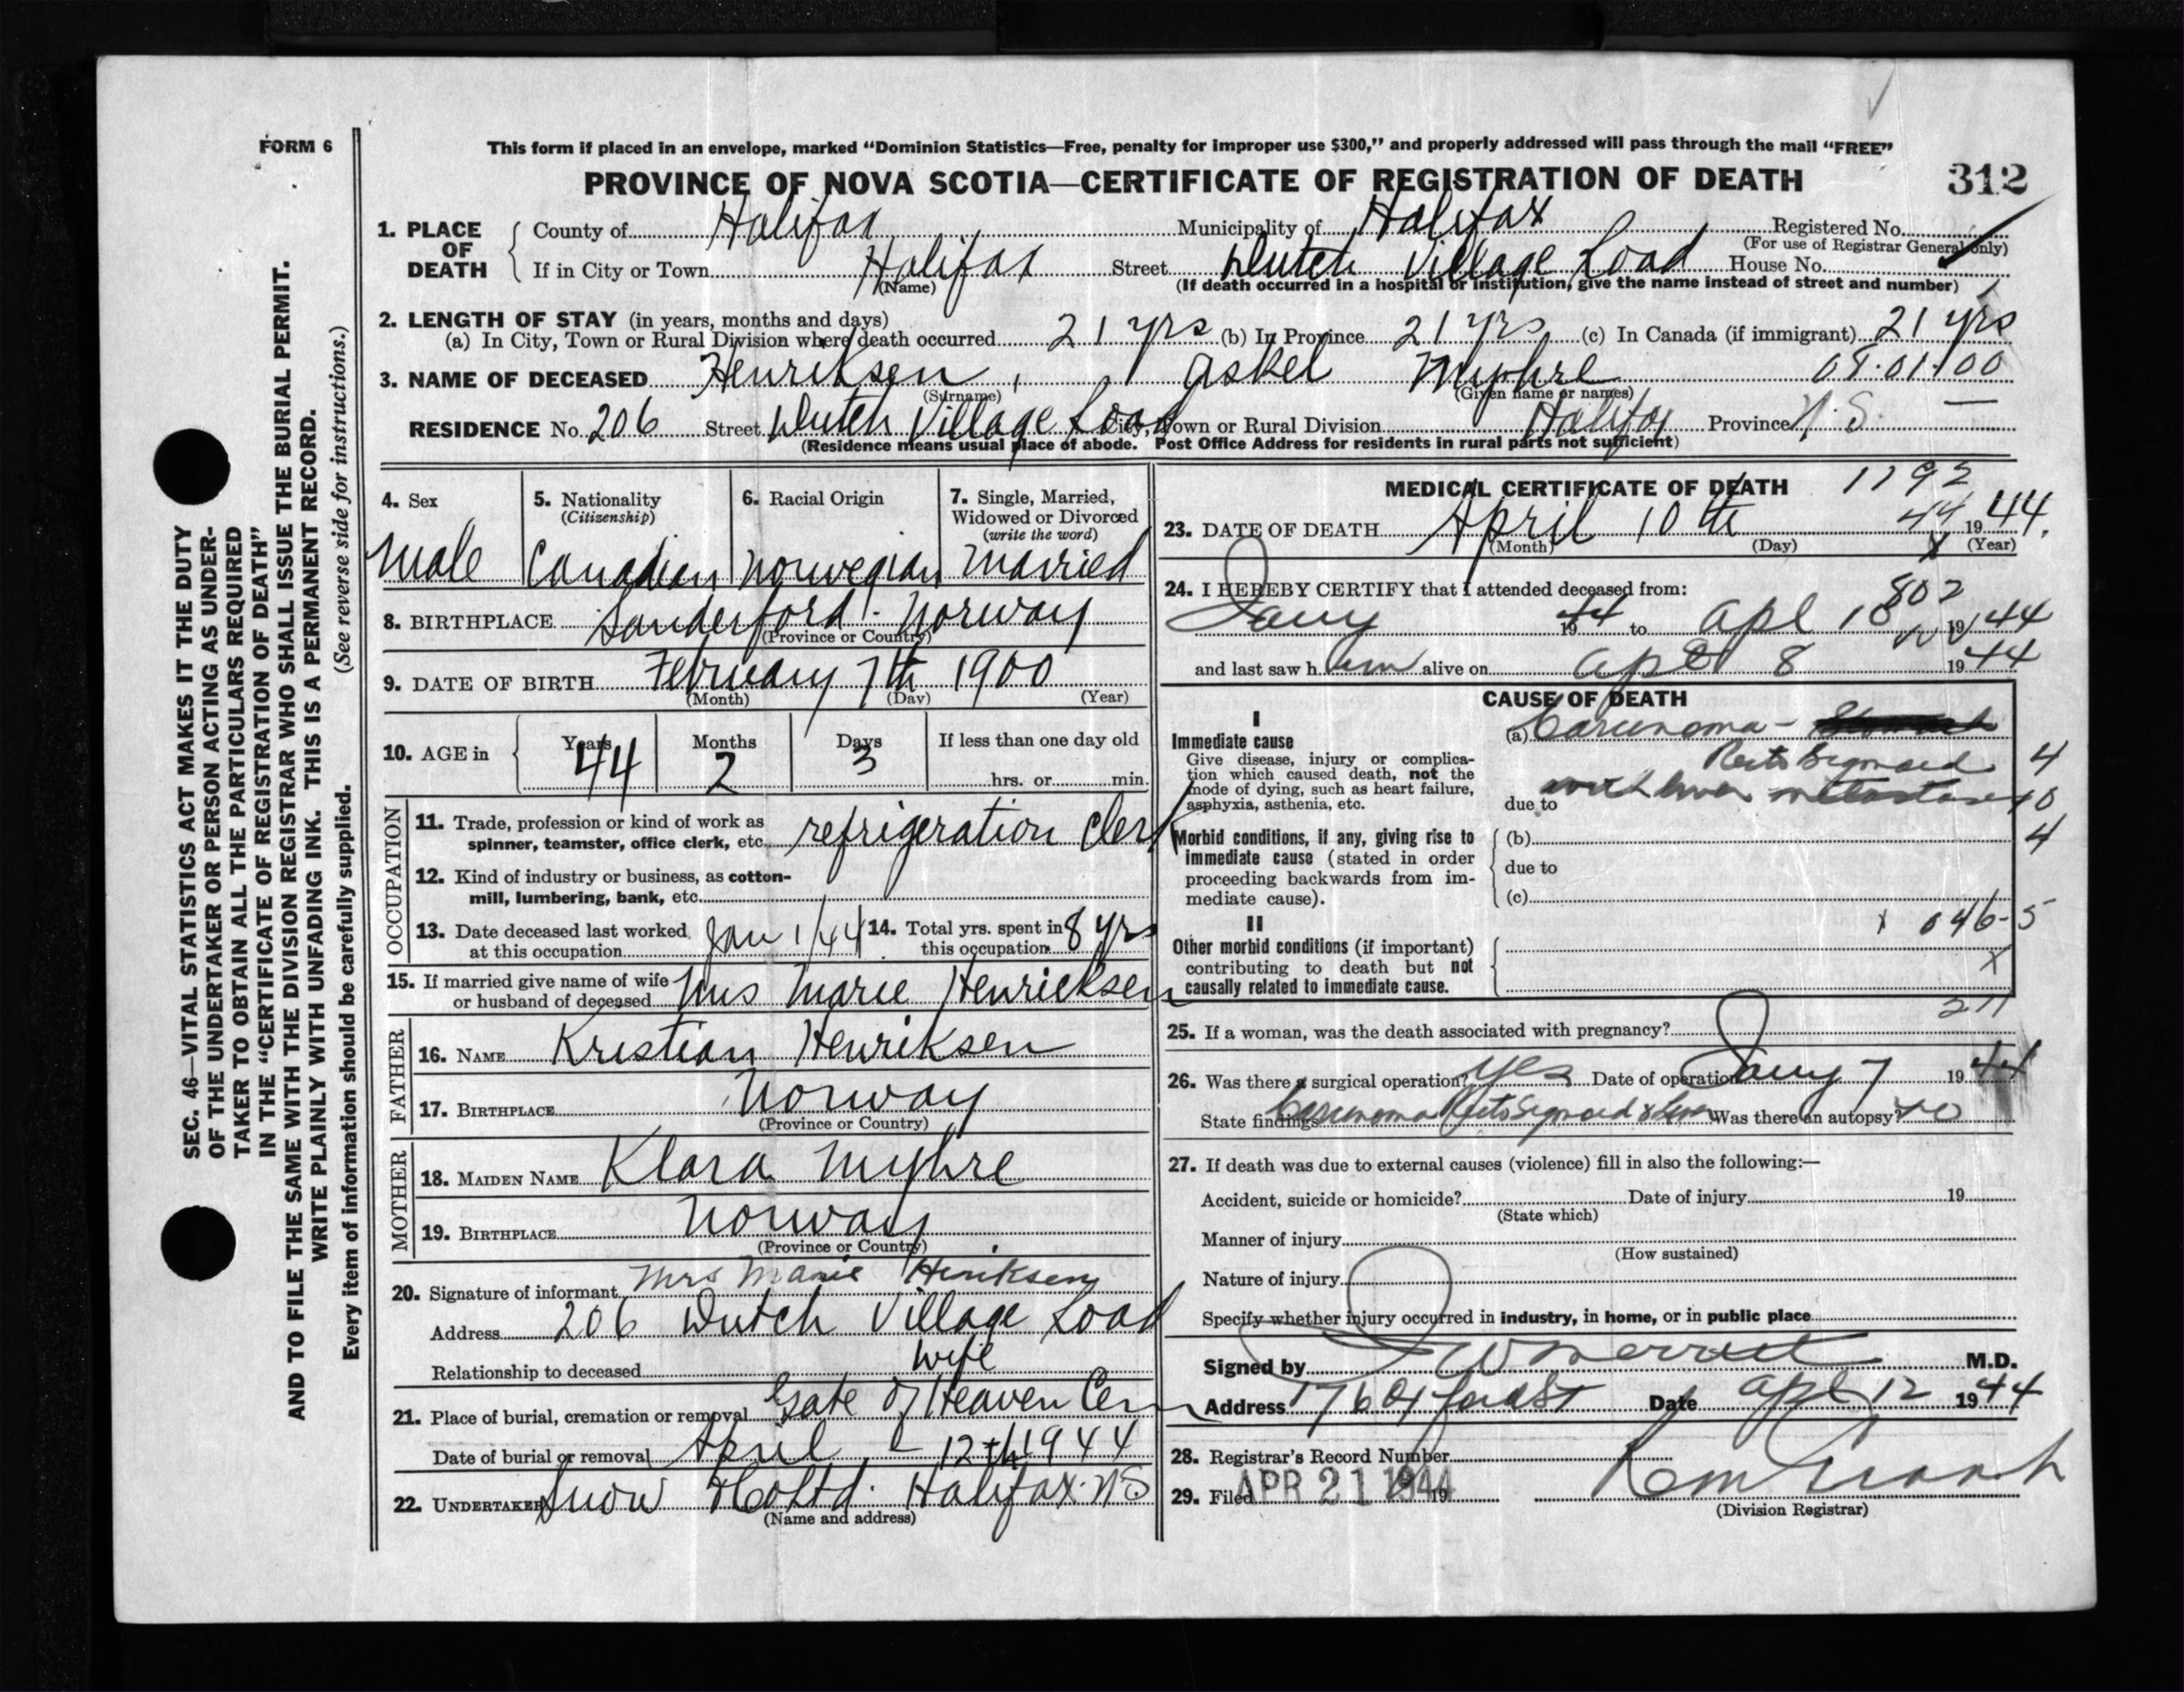 FORM 6
This form if placed in an envelope, marked "Dominion Statistics—Free, penalty for improper use $300," and properly addressed will pass through the mail "FREE"
PROVINCE OF NOVA SCOTIA—CERTIFICATE OF REGISTRATION OF DEATH 312
1. PLACE OF DEATH
County of Halifax Municipality of Halifax Registered No.
(For use of Registrar General only)
If in City or Town Halifax Street Dutch Village Road House No.
(Name) (If death occurred in a hospital or institution, give the name instead of street and number)
2. LENGTH OF STAY (in years, months and days)
(a) In City, Town or Rural Division where death occurred 21 yrs (b) In Province 21 yrs (c) In Canada (if immigrant) 21 yrs
3. NAME OF DECEASED Henriksen, Askel Myhre 08.01.00
(Surname) (Given name or names)
RESIDENCE No. 206 Street Dutch Village Road City, Town or Rural Division Halifax Province N.S.
(Residence means usual place of abode. Post Office Address for residents in rural parts not sufficient)
4. Sex Male
5. Nationality (Citizenship) Canadian
6. Racial Origin Norwegian
7. Single, Married, Widowed or Divorced (write the word) Married
8. BIRTHPLACE Sanderford. Norway
(Province or Country)
9. DATE OF BIRTH February 7th 1900
(Month) (Day) (Year)
10. AGE in Years 44 Months 2 Days 3 If less than one day old hrs. or min.
OCCUPATION
11. Trade, profession or kind of work as spinner, teamster, office clerk, etc. refrigeration Clerk
12. Kind of industry or business, as cotton-mill, lumbering, bank, etc.
13. Date deceased last worked at this occupation Jan 1/44
14. Total yrs. spent in this occupation 8 yrs
15. If married give name of wife or husband of deceased Mrs Marie Henricksen
FATHER
16. NAME Kristian Henriksen
17. BIRTHPLACE Norway
(Province or Country)
MOTHER
18. MAIDEN NAME Klara Myhre
19. BIRTHPLACE Norway
(Province or Country)
20. Signature of informant Mrs Marie Henriksen
Address 206 Dutch Village Road
Relationship to deceased wife
21. Place of burial, cremation or removal Gate of Heaven Cem
Date of burial or removal April - 12th 1944
22. UNDERTAKER Snow & Co Ltd. Halifax. N S
(Name and address)
MEDICAL CERTIFICATE OF DEATH 1192
23. DATE OF DEATH April 10th 44 1944.
(Month) (Day) (Year)
24. I HEREBY CERTIFY that I attended deceased from: 802
Jany 1944 to Apl 10 1944
and last saw him alive on Apl 8 1944
CAUSE OF DEATH
I
Immediate cause
Give disease, injury or complication which caused death, not the mode of dying, such as heart failure, asphyxia, asthenia, etc.
(a) Carcinoma - Stomach
Recto Sigmoid 4
due to with liver metastases 10
Morbid conditions, if any, giving rise to immediate cause (stated in order proceeding backwards from immediate cause).
(b) 4
due to
(c)
x 046-5
II
Other morbid conditions (if important) contributing to death but not causally related to immediate cause.
x
211
25. If a woman, was the death associated with pregnancy?
26. Was there a surgical operation? Yes Date of operation Jany 7 1944
State findings Carcinoma Recto Sigmoid & Liver Was there an autopsy? no
27. If death was due to external causes (violence) fill in also the following:—
Accident, suicide or homicide? Date of injury 19
(State which)
Manner of injury
(How sustained)
Nature of injury
Specify whether injury occurred in industry, in home, or in public place
Signed by M.D.
Address Date Apl 12 1944
28. Registrar's Record Number
29. Filed APR 21 1944 19
(Division Registrar)
SEC. 46—VITAL STATISTICS ACT MAKES IT THE DUTY
OF THE UNDERTAKER OR PERSON ACTING AS UNDER-
TAKER TO OBTAIN ALL THE PARTICULARS REQUIRED
IN THE "CERTIFICATE OF REGISTRATION OF DEATH"
AND TO FILE THE SAME WITH THE DIVISION REGISTRAR WHO SHALL ISSUE THE BURIAL PERMIT.
WRITE PLAINLY WITH UNFADING INK. THIS IS A PERMANENT RECORD.
Every item of information should be carefully supplied. (See reverse side for instructions.)